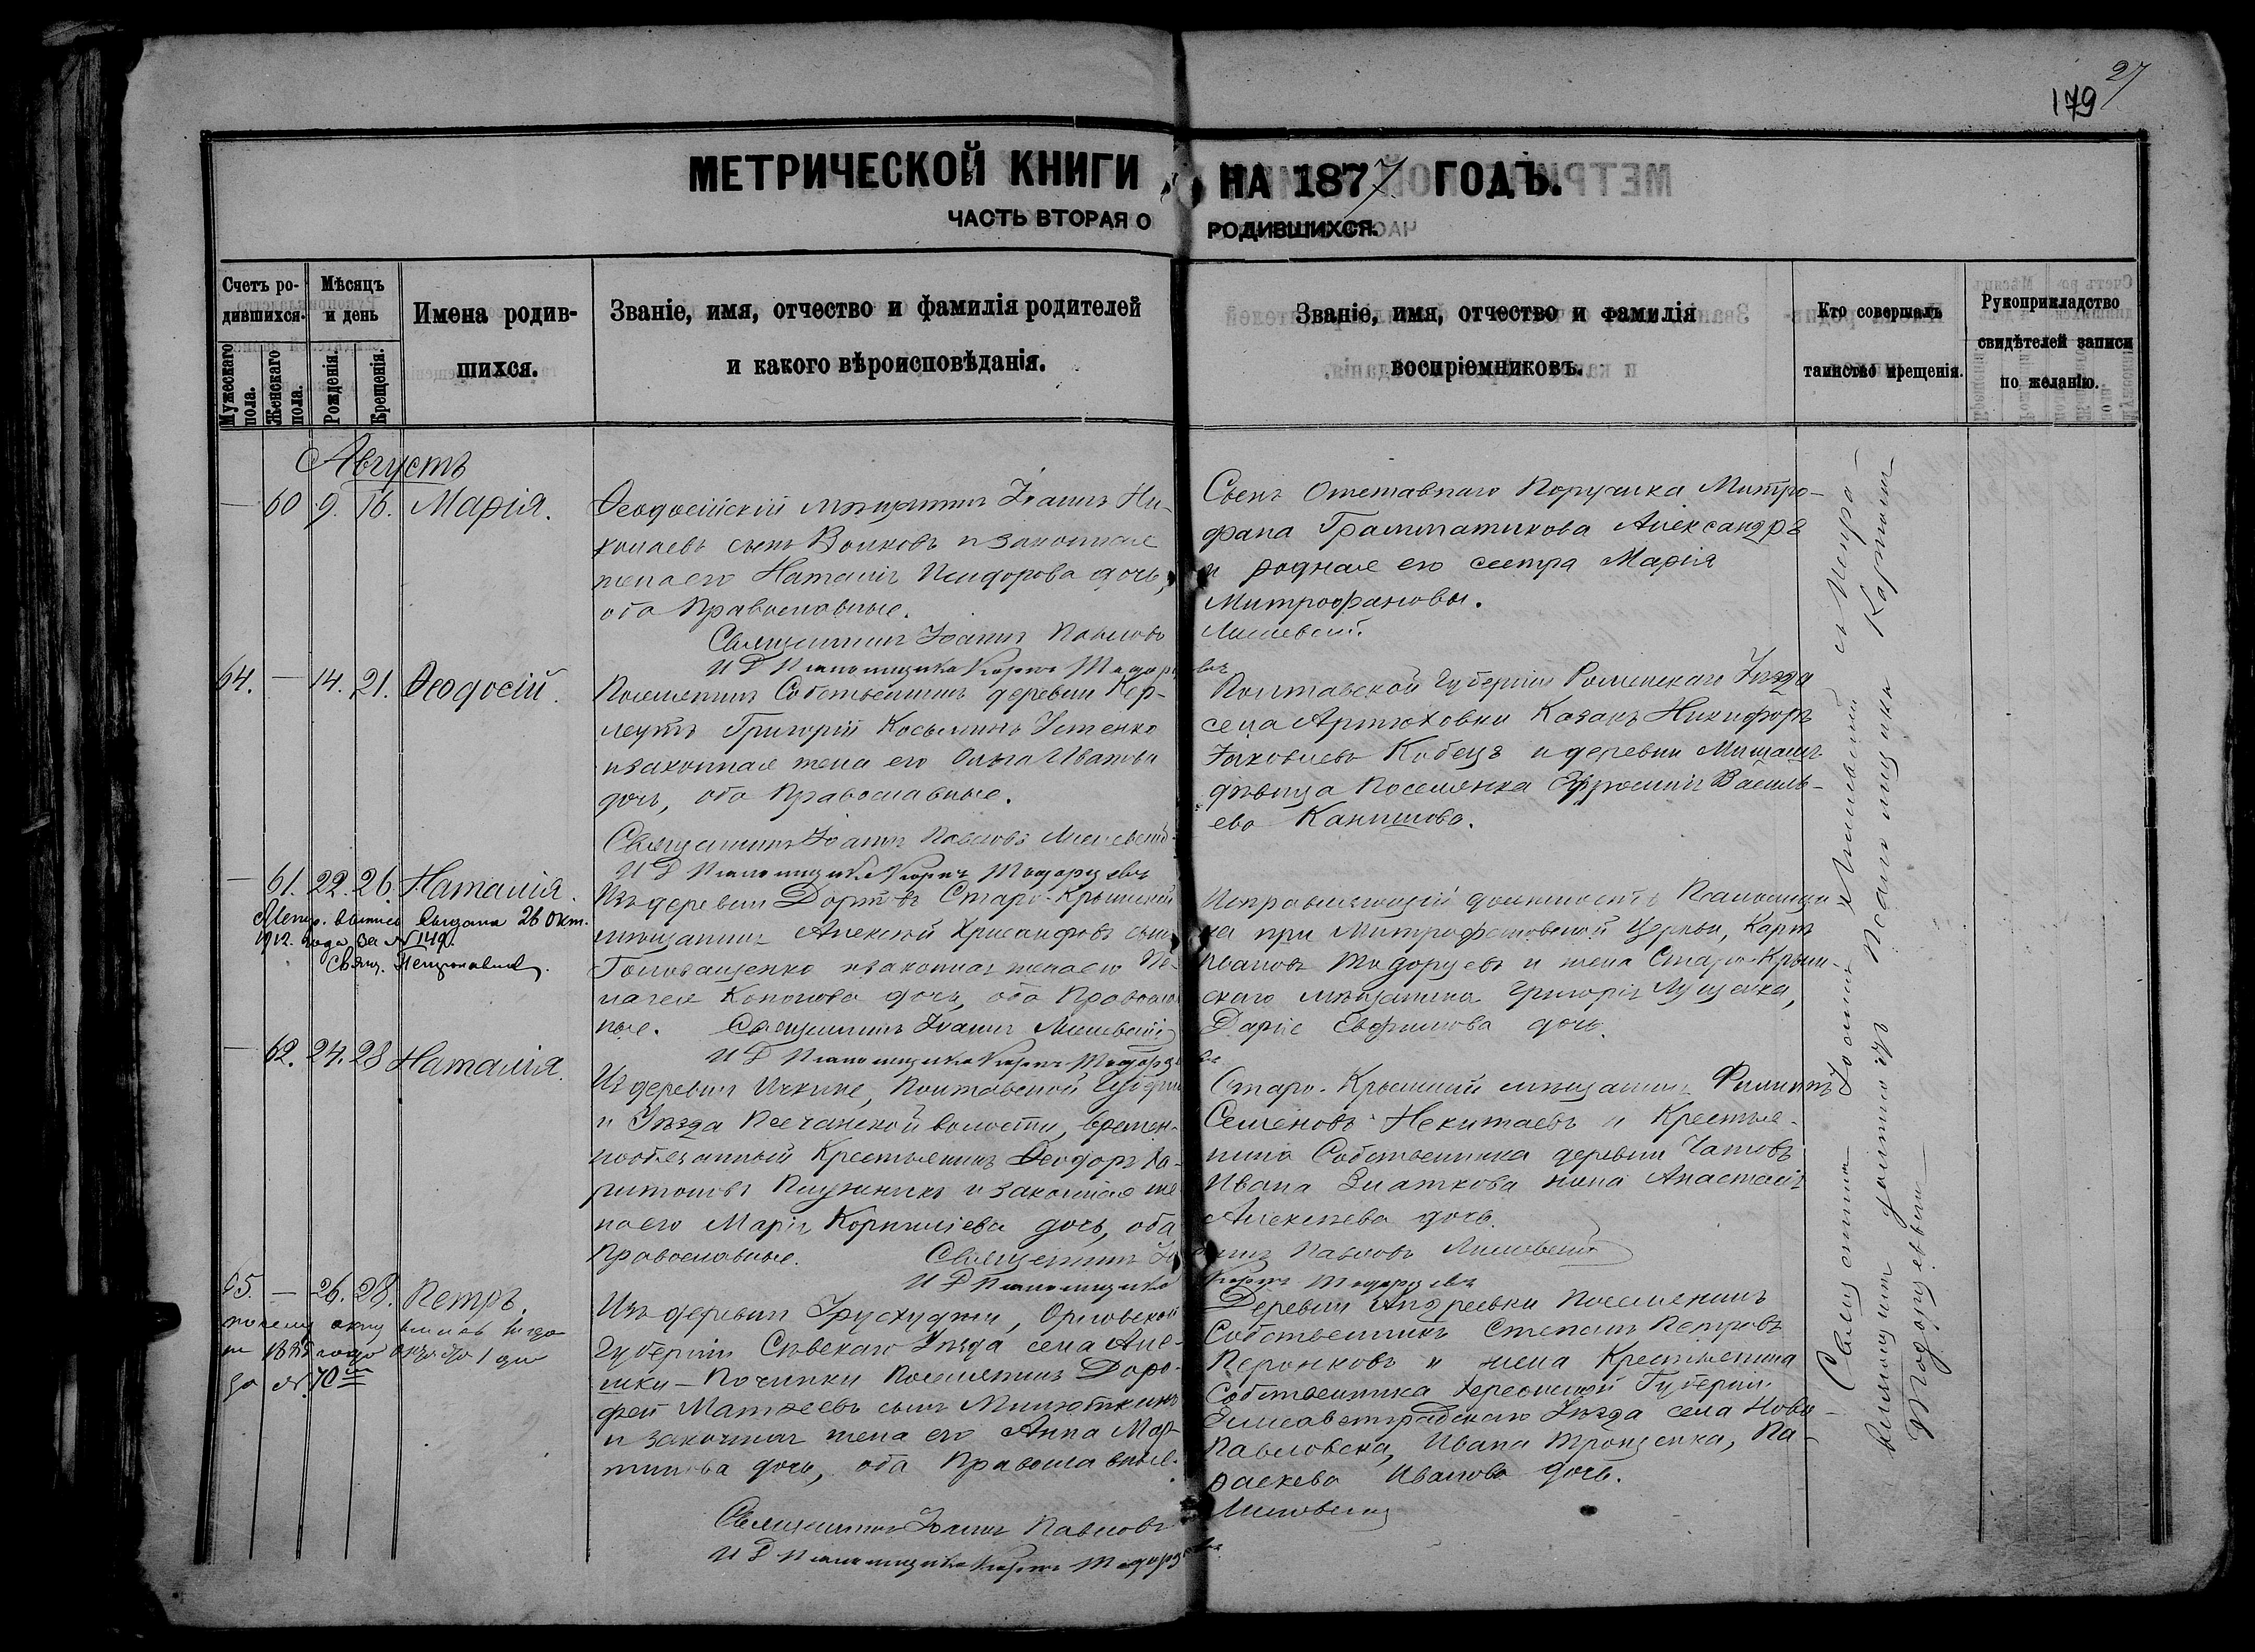 27
179
МЕТРИЧЕСКОЙ КНИГИ НА 1877 ГОДЪ.
ЧАСТЬ ВТОРАЯ О РОДИВШИХСЯ.
Счетъ родившихся.
Мужескаго пола.
Женскаго пола.
Мѣсяцъ и день
Рожденія.
Крещенія.
Имена родив-
шихся.
Званіе, имя, отчество и фамилія родителей
и какого вѣроисповѣданія.
Званіе, имя, отчество и фамилія
воспріемниковъ.
Кто совершалъ
таинство крещенія.
Рукоприкладство
свидѣтелей записи
по желанію.
Августъ
— 60 9. 16. Марія.
Ѳеодосійскій мѣщанинъ Іоаннъ Ни-
колаевъ сынъ Волковъ и законная
жена его Наталія Исидорова дочь,
оба Православные.
Священникъ Іоаннъ Павловъ
И Д Псаломщика Карпъ
Сынъ Отставнаго Поручика Митро-
фана Грамматикова Александръ
и родная его сестра Марія
Митрофановы.
64. — 14. 21. Ѳеодосій.
Поселянинъ Собственникъ деревни Кер-
леутъ Григорій Косьминъ Устенко
и законная жена его Ольга Иванова
дочь, оба Православные.
Священникъ Іоаннъ Павловъ
И Д Псаломщика Карпъ
Полтавской Губерніи Роменскаго Уѣзда
села Артюховки Казакъ Никифоръ
Яковлевъ Кобецъ и деревни
дѣвица Поселянка Ефросинія Василь-
ева Канишова.
— 61. 22. 26. Наталія.
Метр. выпись выдана 26 Окт.
1912. года за № 149.
Свящ.
Изъ деревни Старо-Крымскій
мѣщанинъ Алексѣй Хрисанфовъ сынъ
Головащенко и законная жена его Пе-
лагея Кононова дочь, оба Православ
ные. Священникъ Іоаннъ
И Д Псаломщика Карпъ
Исправляющій должность Псаломщи
ка при Митрофановской Церкви, Карпъ
Ивановъ и жена Старо-Крым-
скаго мѣщанина Григорія Лущенка,
Дарія Евфимова дочь.
— 62. 24. 28 Наталія.
Изъ деревни Ичкине, Полтавской Губерніи
и Уѣзда Песчанской волости, времен-
нообязанный Крестьянинъ Ѳеодоръ Ха-
ритоновъ и законная же
на его Марія Корниліева дочь, оба
Православные. Священникъ
И Д Псаломщика
Старо-Крымскій мѣщанинъ Филиппъ
Семеновъ Некитаевъ и Крестья-
нина Собственника деревни
Ивана Златкова жена Анастасія
Алексѣева дочь.
65. — 26. 28. Петръ.
по сему акту выпись
за № 70
Изъ деревни Орловской
Губерніи Сѣвскаго Уѣзда села Але-
шки-Починки Поселянинъ Доро-
фей Матѳеевъ сынъ Милюткинъ
и законная жена его Анна Мар-
тинова дочь, оба Православные.
Священникъ Іоаннъ Павловъ
И Д Псаломщика Карпъ
Деревни Андреевки Поселянинъ
Собственникъ Степанъ Петровъ
и жена Крестьянина
Собственника Херсонской Губерніи
Елисаветградскаго Уѣзда села Ново-
Павловска, Ивана Троценка, Па-
раскева Иванова дочь.
Священникъ Іоаннъ
Псаломщика Карпомъ